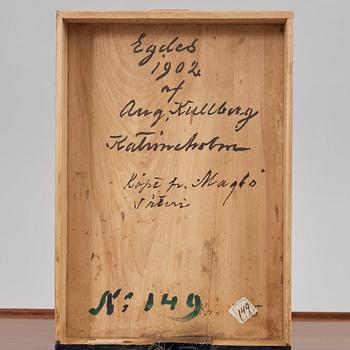 Egdeb
1902
af
Aug. Kullberg
Katrineholm
Köpt fr. Magbo
Säteri
N: 149
149